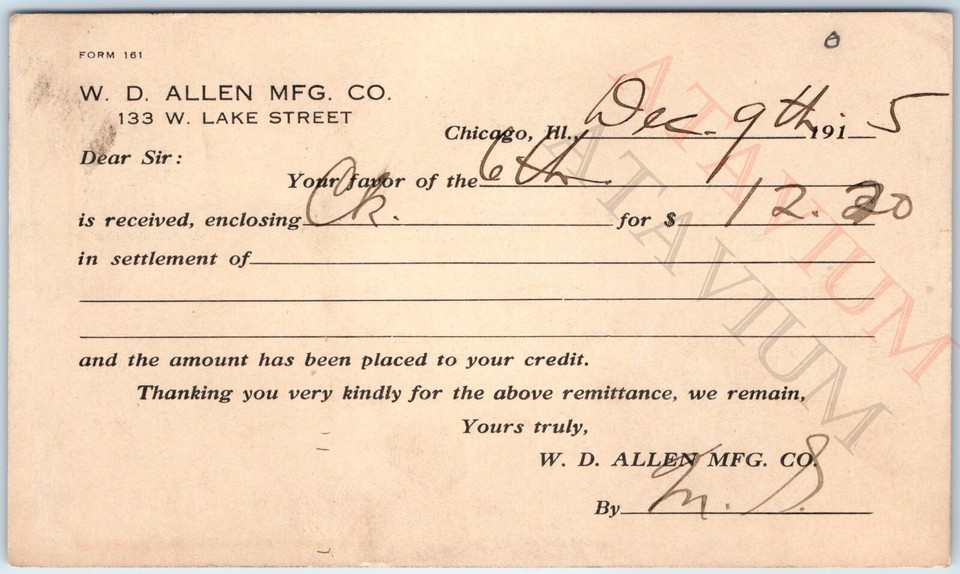 o
FORM 161
W. D. ALLEN MFG. CO.
133 W. LAKE STREET
Chicago, Ill., Dec. 9th. 191 5
Dear Sir:
Your favor of the 6th
is received, enclosing Ck. for $ 12.20
in settlement of
and the amount has been placed to your credit.
Thanking you very kindly for the above remittance, we remain,
Yours truly,
W. D. ALLEN MFG. CO.
By M. S.
ATAVIUM
ATAVIUM